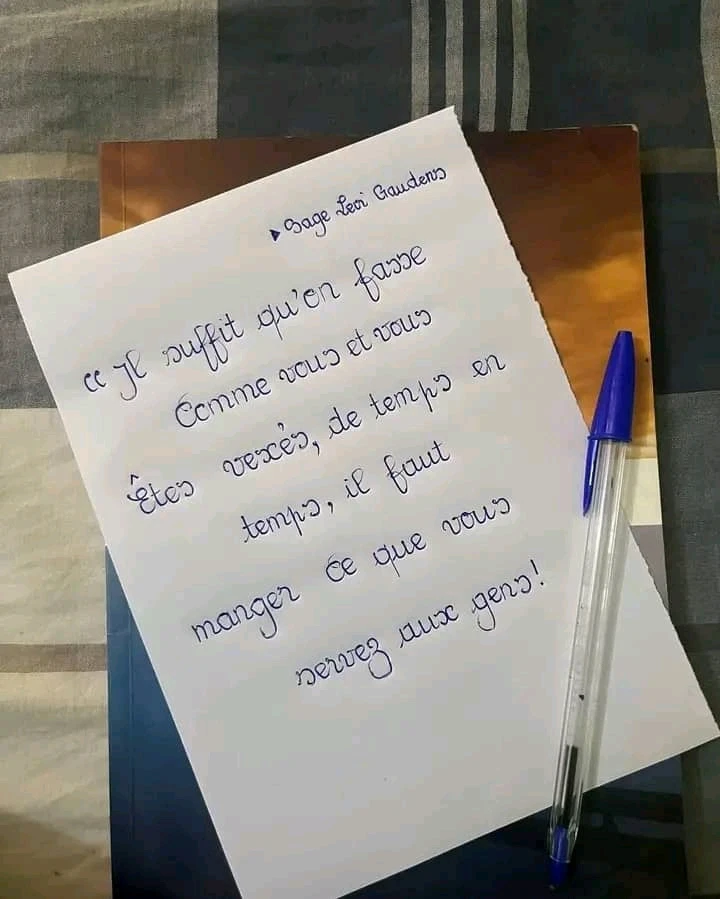 ▶ Sage Levi Gaudens
“ Il suffit qu'on fasse
Comme vous et vous
Êtes vexés, de temps en
temps, il faut
manger ce que vous
servez aux gens!